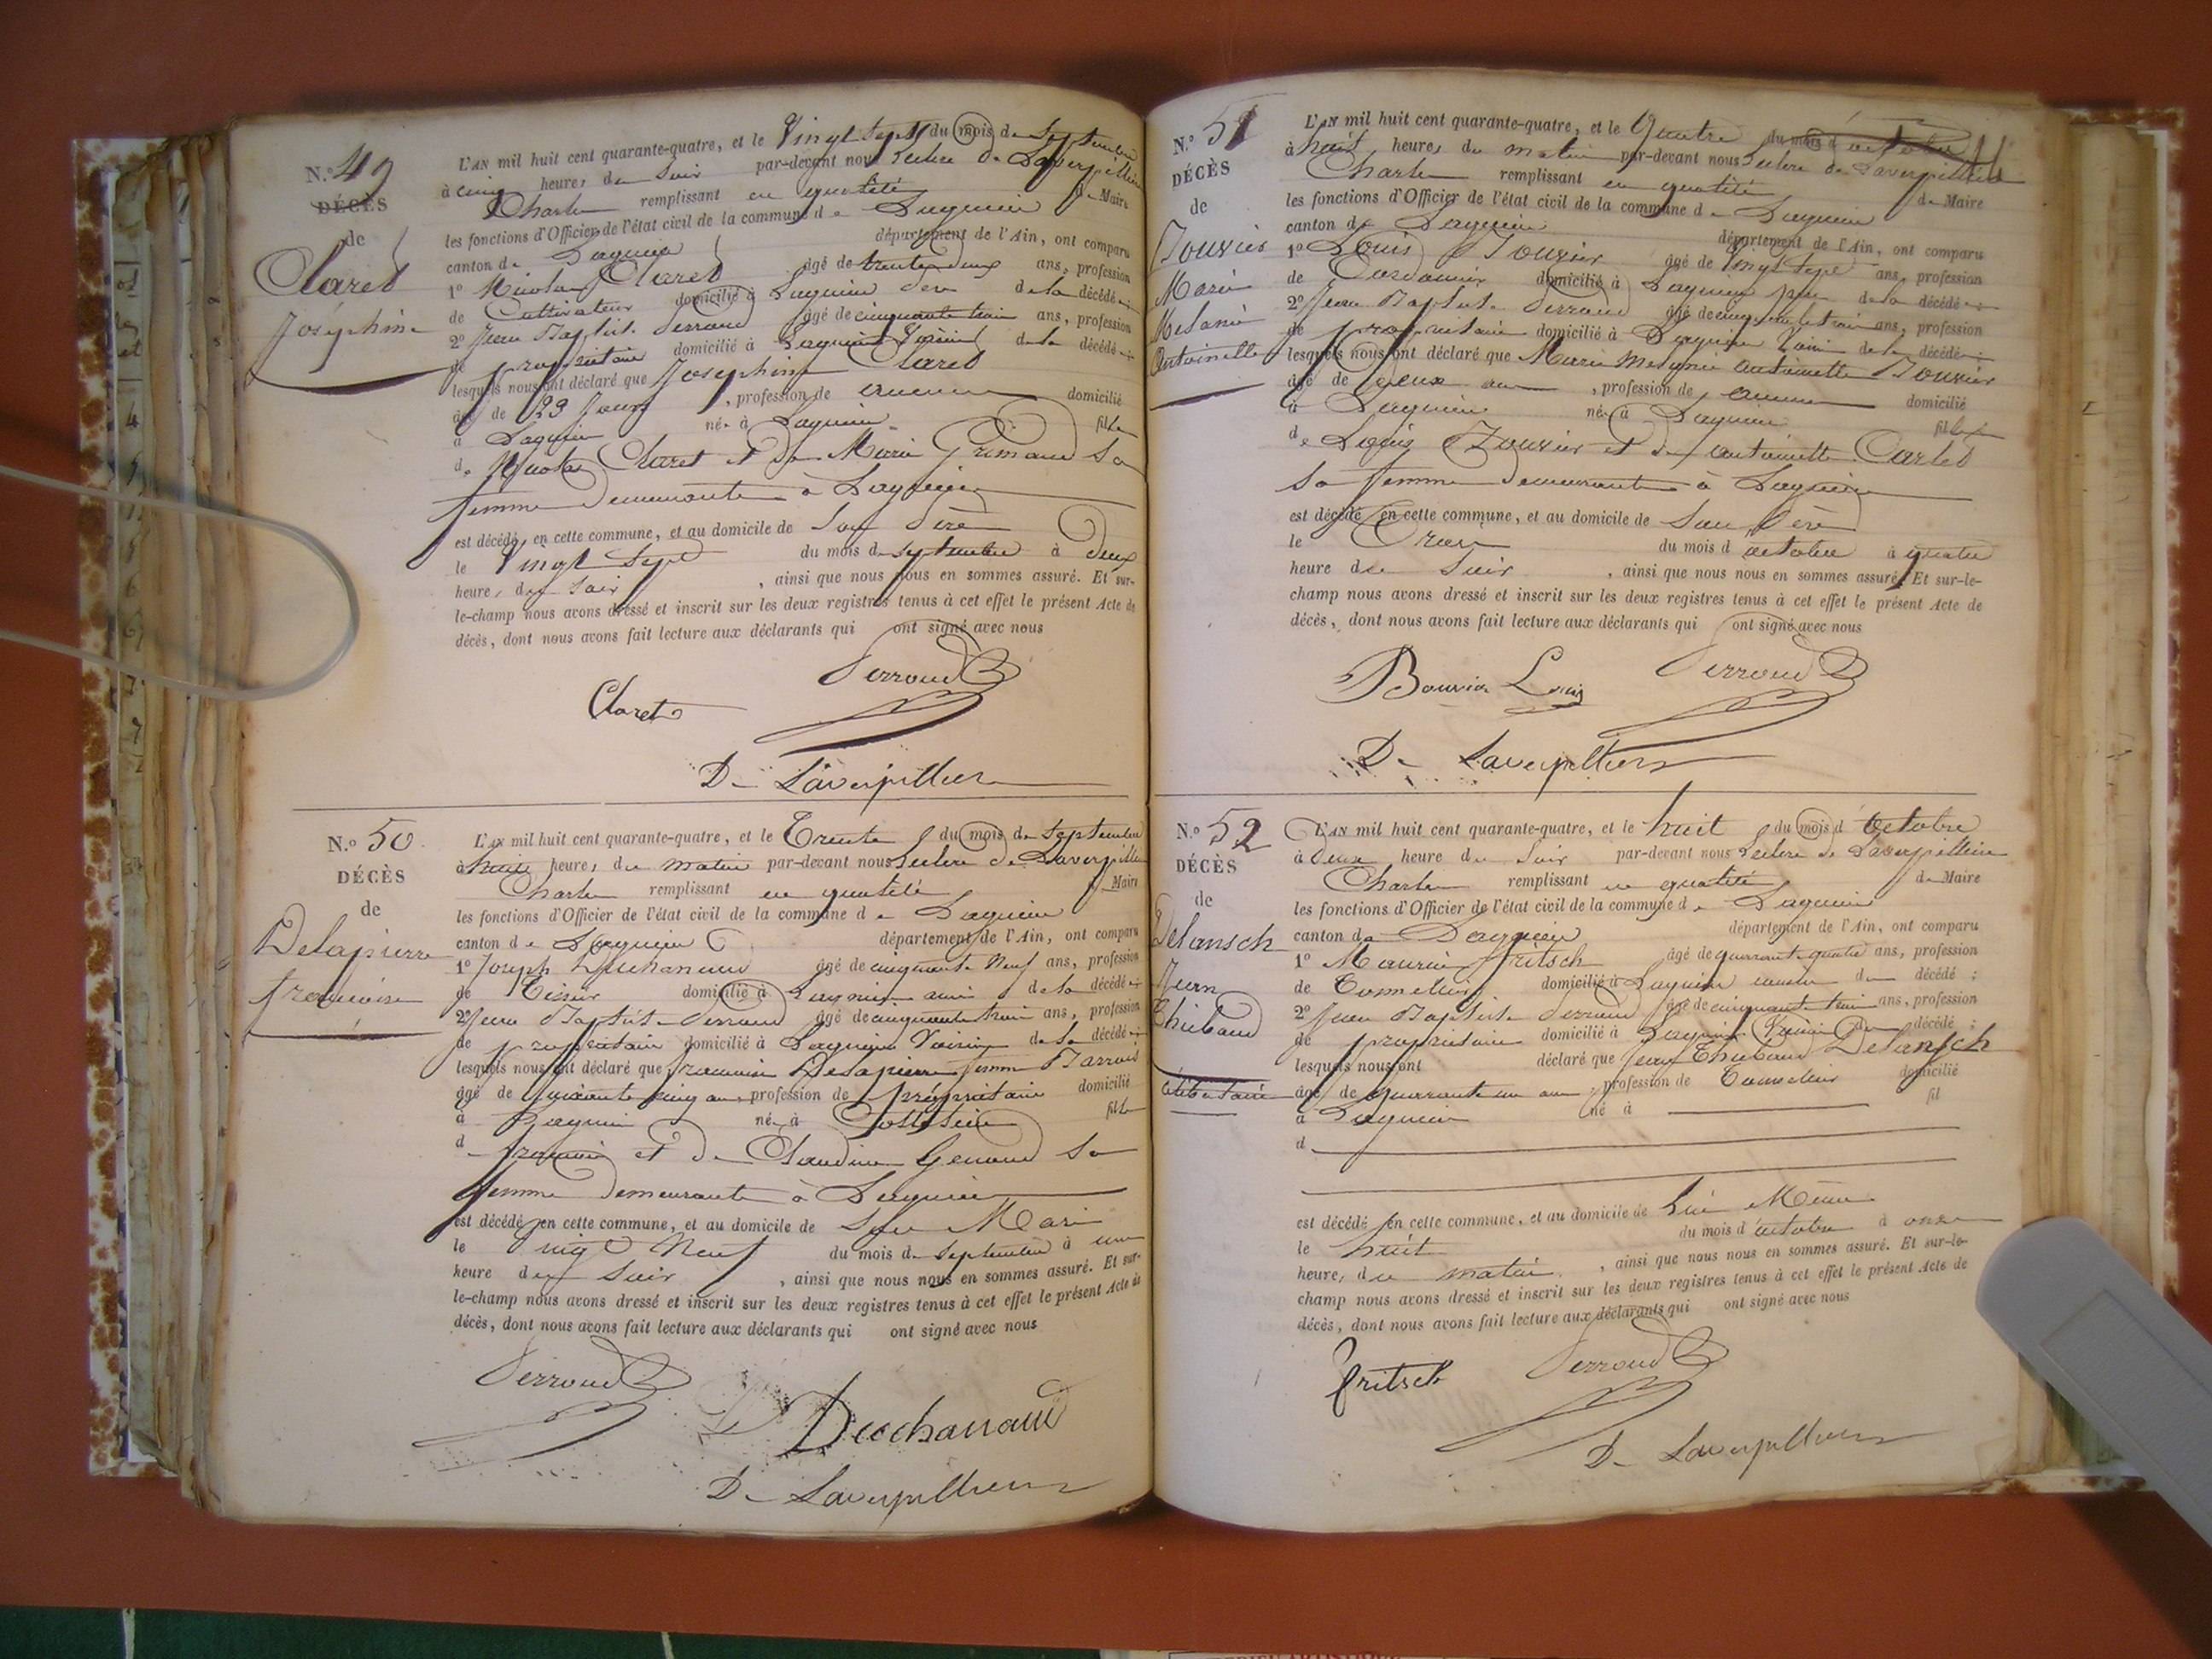 N.o 49
DÉCÈS
de
Claret
Joséphine
L'AN mil huit cent quarante-quatre, et le Vingt Sept du mois de Septembre
à cinq heures du Soir par-devant nous de Laverpilliere
Charles remplissant en qualité de Maire
les fonctions d'Officier de l'état civil de la commune de Lagnieu
canton de Lagnieu département de l'Ain, ont comparu
1o Nicolas Claret âgé de trente deux ans, profession
de Cultivateur domicilié à Lagnieu Père de la décédée
2o Jean Baptiste Perroud âgé de cinquante trois ans, profession
de propriétaire domicilié à Lagnieu Voisin de la décédée
lesquels nous ont déclaré que Joséphine Claret
âgé de 23 Jours, profession de aucune domicilié
à Lagnieu née à Lagnieu fille
de Nicolas Claret et de Marie Grimaud Sa
femme demeurante à Lagnieu
est décédé en cette commune, et au domicile de Son Père
le Vingt Sept du mois de septembre à Deux
heures du Soir, ainsi que nous nous en sommes assuré. Et sur-
le-champ nous avons dressé et inscrit sur les deux registres tenus à cet effet le présent Acte de
décès, dont nous avons fait lecture aux déclarants qui ont signé avec nous
Perroud
Claret
De Laverpilliere
N.o 50
DÉCÈS
de
Delapierre
françoise
L'AN mil huit cent quarante-quatre, et le Trente du mois de Septembre
à huit heures du matin par-devant nous de Laverpilliere
Charles remplissant en qualité de Maire
les fonctions d'Officier de l'état civil de la commune de Lagnieu
canton de Lagnieu département de l'Ain, ont comparu
1o Joseph Duchanaud âgé de cinquante Neuf ans, profession
de domicilié à Lagnieu ami de la décédée
2o Jean Baptiste Perroud âgé de cinquante trois ans, profession
de propriétaire domicilié à Lagnieu Voisin de la décédée
lesquels nous ont déclaré que françoise Delapierre femme
âgé de cinq ans, profession de propriétaire domicilié
à Lagnieu née à fille
de et de Claudine Genoud Sa
femme demeurante à Lagnieu
est décédé en cette commune, et au domicile de Son Mari
le vingt Neuf du mois de Septembre à une
heure du Soir, ainsi que nous nous en sommes assuré. Et sur-
le-champ nous avons dressé et inscrit sur les deux registres tenus à cet effet le présent Acte de
décès, dont nous avons fait lecture aux déclarants qui ont signé avec nous
Perroud
Duchanaud
De Laverpilliere
N.o 51
DÉCÈS
de
Bouvier
Marie
Melanie
Antoinette
L'AN mil huit cent quarante-quatre, et le Quatre du mois d'octobre
à huit heures du matin par-devant nous de Laverpilliere
Charles remplissant en qualité de Maire
les fonctions d'Officier de l'état civil de la commune de Lagnieu
canton de Lagnieu département de l'Ain, ont comparu
1o Louis Bouvier âgé de Vingt Sept ans, profession
de Cordonnier domicilié à Lagnieu père de la décédée
2o Jean Baptiste Perroud âgé de cinquante trois ans, profession
de propriétaire domicilié à Lagnieu Voisin de la décédée
lesquels nous ont déclaré que Marie Melanie Antoinette Bouvier
âgé de Deux ans, profession de aucune domicilié
à Lagnieu née à Lagnieu fille
de Louis Bouvier et de Antoinette Carlet
Sa femme demeurante à Lagnieu
est décédé en cette commune, et au domicile de Son Père
le Trois du mois d'octobre à quatre
heure du Soir, ainsi que nous nous en sommes assuré. Et sur-le-
champ nous avons dressé et inscrit sur les deux registres tenus à cet effet le présent Acte de
décès, dont nous avons fait lecture aux déclarants qui ont signé avec nous
Bouvier Louis Perroud
De Laverpilliere
N.o 52
DÉCÈS
de
Delansch
Jean
Thiebaud
célibataire
L'AN mil huit cent quarante-quatre, et le huit du mois d'Octobre
à Deux heure du Soir par-devant nous de Laverpilliere
Charles remplissant en qualité de Maire
les fonctions d'Officier de l'état civil de la commune de Lagnieu
canton de Lagnieu département de l'Ain, ont comparu
1o Maurice fritsch âgé de quarante quatre ans, profession
de Tonnellier domicilié à Lagnieu cousin du décédé;
2o Jean Baptiste Perroud âgé de cinquante trois ans, profession
de propriétaire domicilié à Lagnieu Voisin du décédé;
lesquels nous ont déclaré que Jean Thiebaud Delansch
âgé de quarante un ans, profession de Tonnellier domicilié
à Lagnieu né à fil
d
est décédé en cette commune, et au domicile de Lui Même
le huit du mois d'octobre à onze
heures du matin, ainsi que nous nous en sommes assuré. Et sur-le-
champ nous avons dressé et inscrit sur les deux registres tenus à cet effet le présent Acte de
décès, dont nous avons fait lecture aux déclarants qui ont signé avec nous
fritsch Perroud
De Laverpilliere